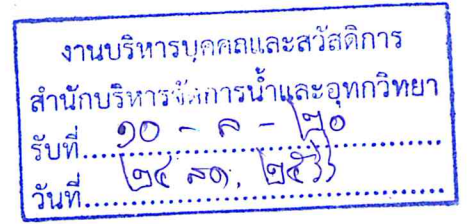 งานบริหารบุคคลและสวัสดิการ
สำนักบริหารจัดการน้ำและอุทกวิทยา
รับที่..... ๑๐ - - ๒๐
วันที่..... ๒๔ สค.